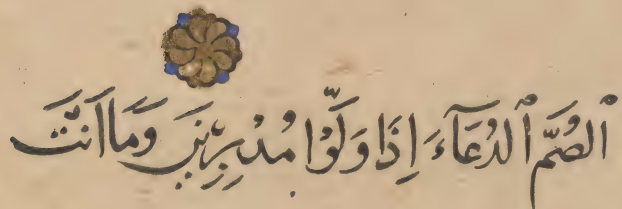 ٱلصُّمَّ ٱلدُّعَآءَ إِذَا وَلَّوْا مُدْبِرِينَ وَمَا اَنْتَ